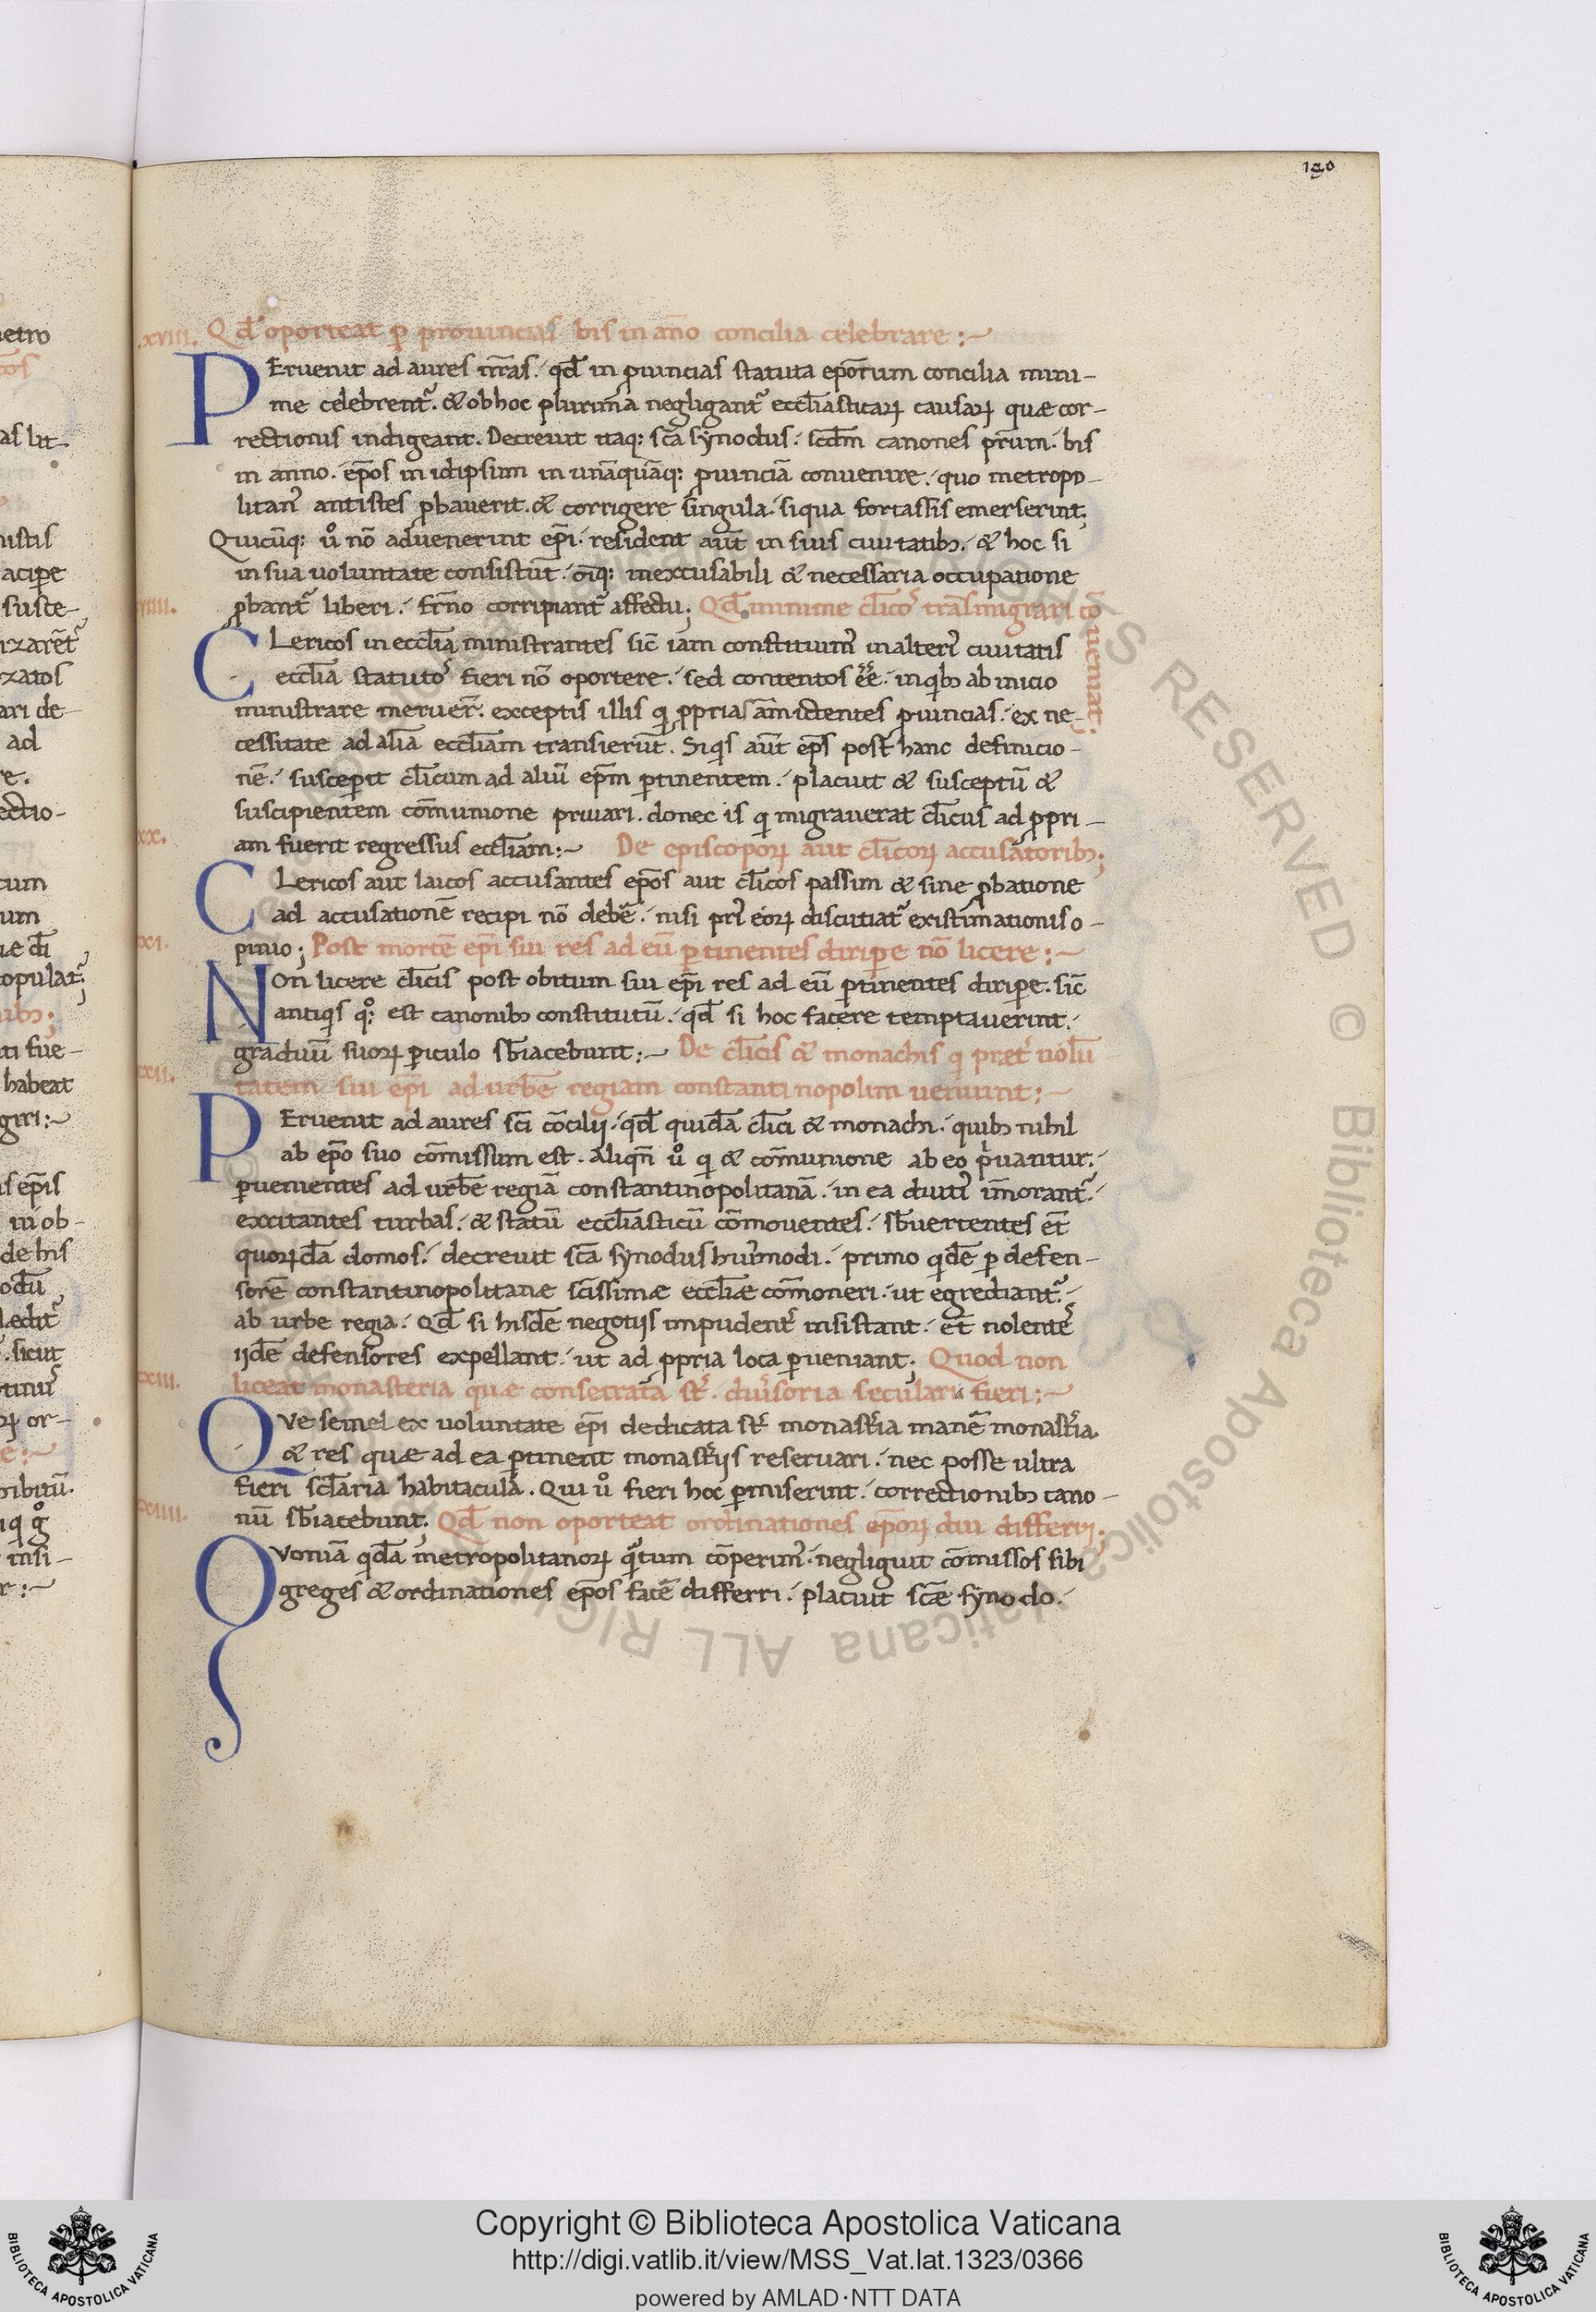 180
.xviii. Qd̄ oporteat ꝑ prouincias bis in anno concilia celebrare:~
PEruenit ad aures nr̄as. qd̄ in ꝓuincias statuta ep̄orum concilia mini-
me celebrent᷑. & ob hoc plurima negligant᷑ eccl̄iasticaꝝ causaꝝ quæ cor-
rectionis indigeant. Decreuit itaq: sc̄a synodus. scd̄m canones pr̄um. bis
in anno. ep̄os in idipsum in unāquāq: ꝓuinciā conuenire. quo metropo-
litan᷒ antistes ꝓbauerit. & corrigere singula. siqua fortassis emerserint;
Quicūq: ůo nō aduenerint ep̄i. resident aūt in suis ciuitatibꝫ. & hoc si
in sua uoluntate consistūt. oīq: inexcusabili & necessaria occupatione
ꝓbant᷑ liberi. fr̄no corripiant᷑ affectu; Qd̄ minime cl̄ico᷒ trāsmigrari cō
ueniat.
CLericos in eccl̄ia ministrantes sic̄ iam constituim᷒ in alteri᷒ ciuitatis
eccl̄ia statuto᷒ fieri nō oportere. sed contentos ēē. in qͥbꝫ ab inicio
ministrare meruer̄. exceptis illis qͥ ꝓprias amittentes ꝓuincias. ex ne-
cessitate ad aliā eccl̄iam transierūt. Siqͥs aūt ep̄s post hanc definicio-
nē. susceperit cl̄icum ad aliū ep̄m ꝑtinentem. placuit & susceptū &
suscipientem cōmunione priuari. donec is qͥ migrauerat cl̄icus ad ꝓpri-
am fuerit regressus eccl̄iam:~ xx. De episcopoꝝ aut cl̄icoꝝ accusatoribꝫ;
CLericos aut laicos accusantes ep̄os aut cl̄icos passim & sine ꝓbatione
ad accusationē recipi nō debē. nisi pri᷒ eoꝝ discutiat᷑ existimationis o-
pinio; xxi. Post mortē ep̄i sui res ad eū ꝑtinentes diriꝑe nō licere:~
NOn licere cl̄icis post obitum sui ep̄i res ad eū ꝑtinentes diriꝑe. sic̄
antiqͥs qͦ: est canonibꝫ constitutū. qd̄ si hoc facere temptauerint.
graduū suoꝝ ꝑiculo sb̄iacebunt:~ De cl̄icis & monachis qͥ præt᷑ uolū
xxii. tatem sui ep̄i ad urbē regiam constantinopolim ueniunt:~
PEruenit ad aures sc̄i cōcilij. qd̄ quidā cl̄ici & monachi. quibꝫ nihil
ab ep̄o suo cōmissum est. aliqn̄ ůo qͥ & cōmunione ab eo pͥuantur.
ꝑuenientes ad urbē regiā constantinopolitanā. in ea diuti᷒ īmorant᷑.
excitantes turbas. & statū eccl̄iasticū cōmouentes. sb̄uertentes et̄
quoꝝdā domos. decreuit sc̄a synodus hui᷒modi. primo qͥdē ꝑ defen-
sorē constantinopolitanæ sc̄issimæ eccl̄iæ cōmoneri. ut egrediant᷑.
ab urbe regia. Qd̄ si hisdē negotiis impudent᷑ insistant. et nolente᷒
ijdē defensores expellant. ut ad ꝓpria loca ꝑueniant; Quod non
xxiii. liceat monasteria quæ consecrata st̄. diu᷑soria secularia fieri:~
QVe semel ex uoluntate ep̄i dedicata st̄ monast᷑ia manē monast᷑ia.
& res quæ ad ea ꝑtinent monast᷑iis reseruari. nec posse ultra
fieri scl̄aria habitacula. Qui ůo fieri hoc ꝑmiserint. correctionibꝫ cano-
nū sb̄iacebunt. xxiiii. Qd̄ non oporteat ordinationes ep̄oꝝ diu differri;
QVoniā qͥdā metropolitanoꝝ qͣtum cōperim᷒. negligunt cōmissos sibi
greges & ordinationes ep̄os facē differri. placuit sc̄æ synodo.
Copyright © Biblioteca Apostolica Vaticana
http://digi.vatlib.it/view/MSS_Vat.lat.1323/0366
powered by AMLAD·NTT DATA